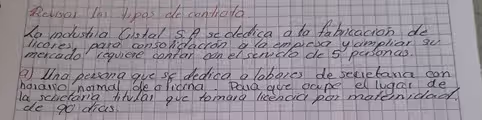 Revisar los tipos de contrato
La industria Cristal S.A se dedica a la fabricación de
licores, para consolidación a la empresa y ampliar su
mercado, requiere contar con el servicio de 5 personas.
a) Una persona que se dedica a labores de secretaria con
horario normal de oficina. Para que ocupe el lugar de
la secretaria titular que tomara licencia por maternidad.
de 90 dias.